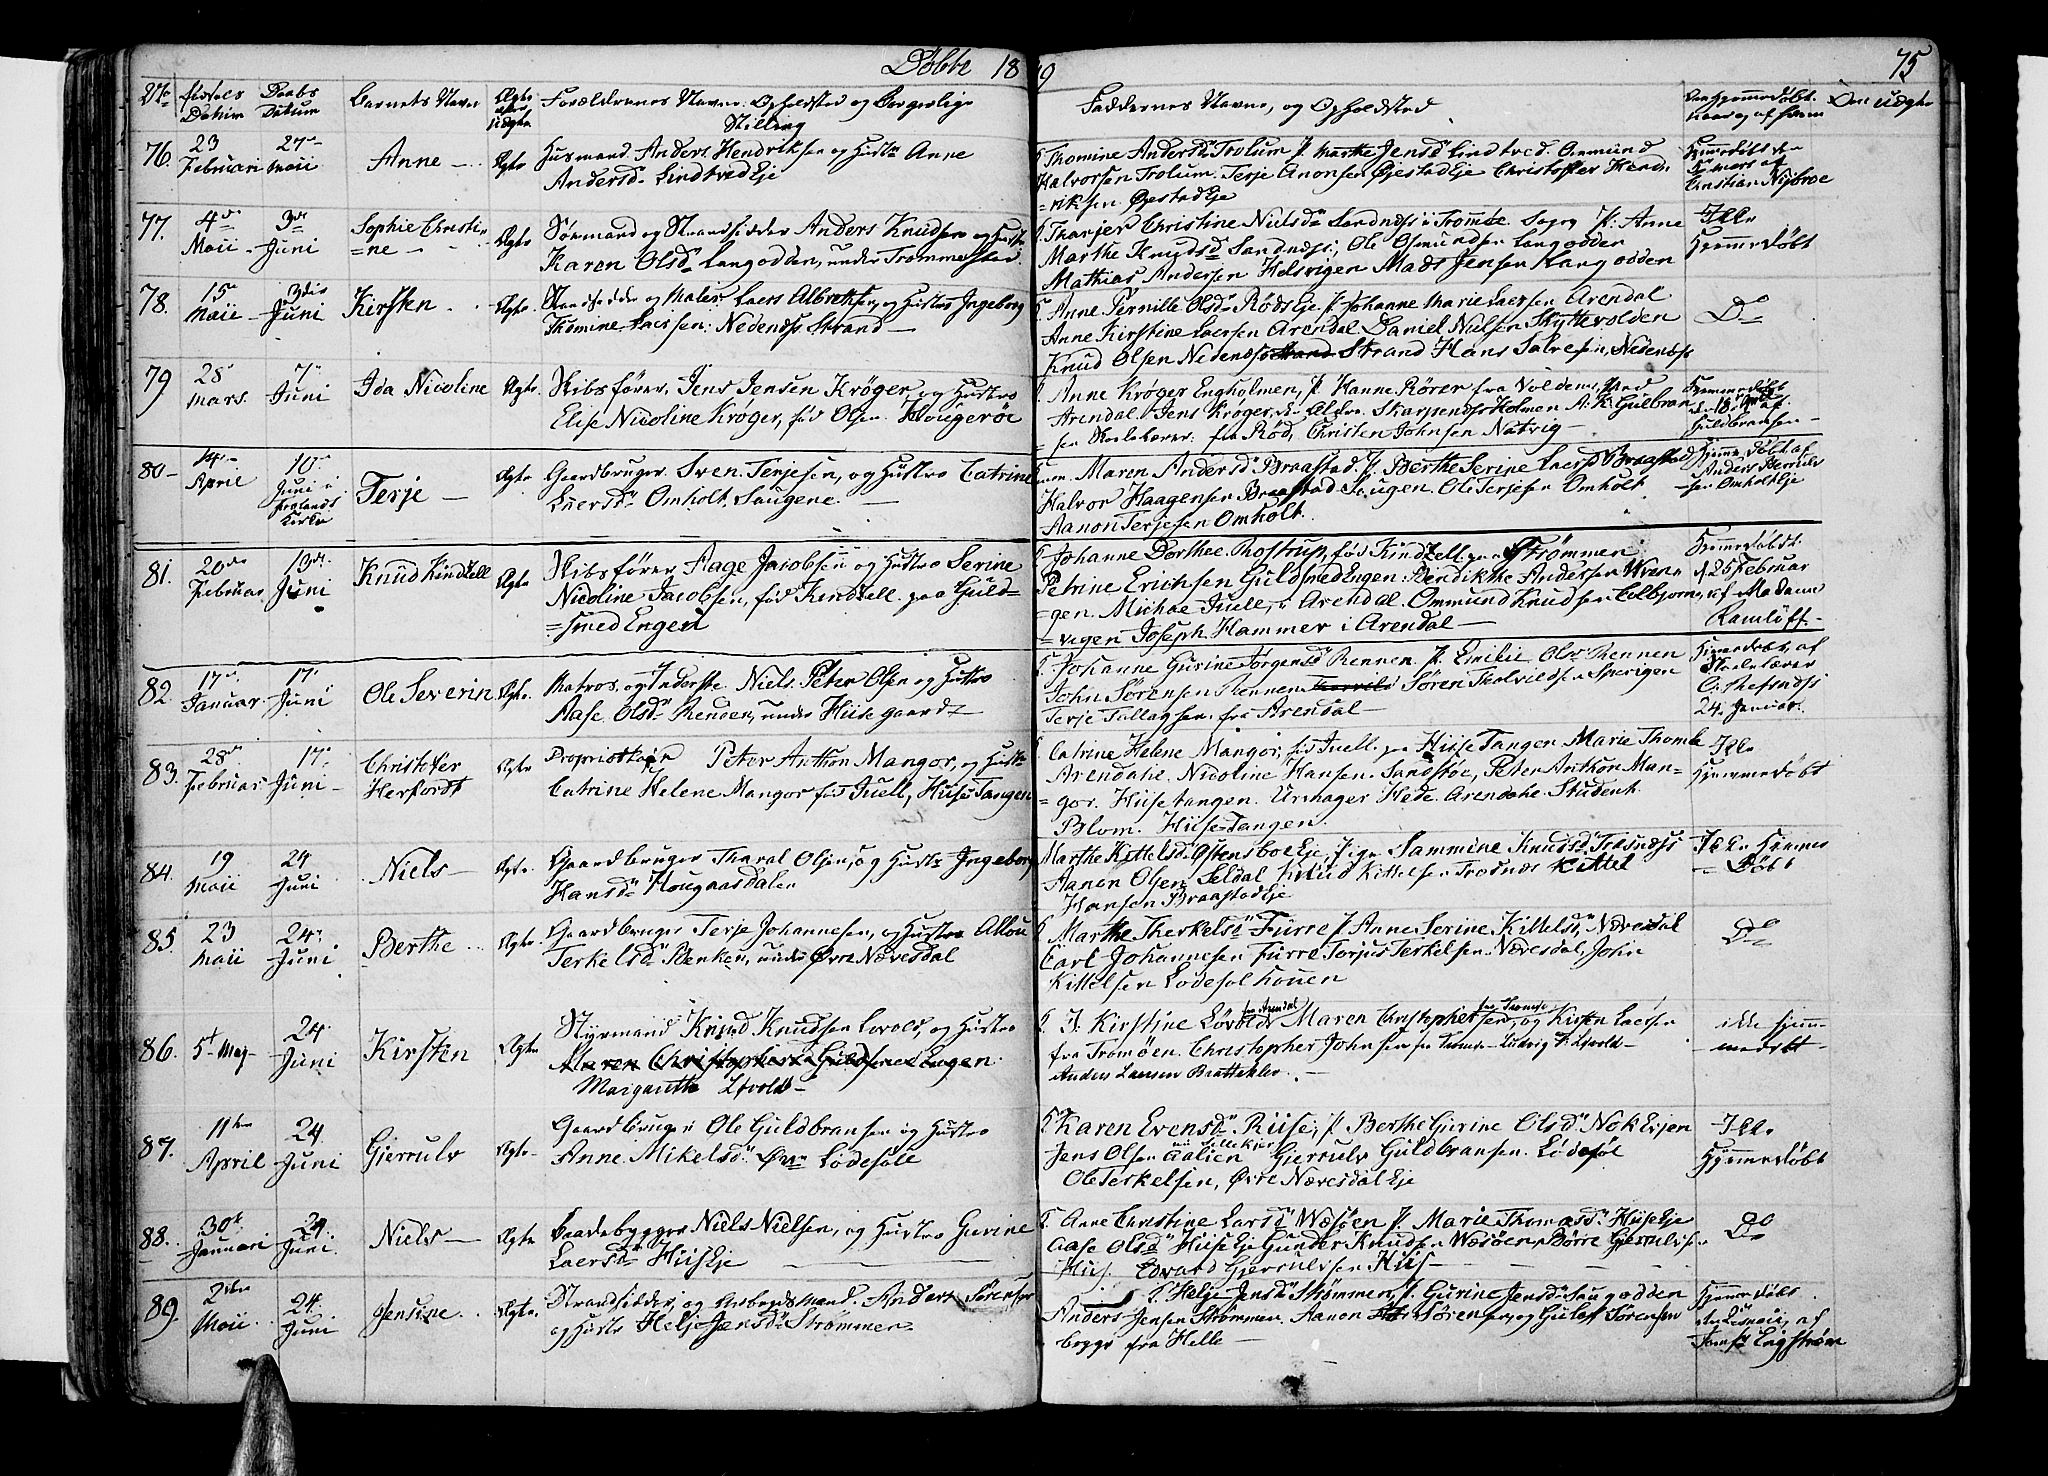 Döbte 18 9
75
No Fødsels Datum Daabs Datum Barnets Navn Ægte eller Uægte Forældrenes Navne, Opholdsted og Borgerlige Stilling
Faddernes Navne, og Opholdsted
Om Hjemmedøbt, naar og af hvem
Om uægte
76. 23 Februari 27de Maii Anne Ægte Husmand Anders Hendriksen og Hustru Anne
Andersd. Lindtved Eje
Thomine Andersd. Trolum P. Marthe Jensd. Lindtved. Ommund
Halvorsen Trolum. Terje Anonsen Øjestad Eje Christoffer Hend-
=riksen Øjestad Eje
Hjemmedøbt
Mars af
Christian Nybroe
77. 4de Maii 3die Juni Sophie Christi-
=ne Ægte Sömand og Strandsidder Anders Knudsen og Hustru
Karen Olsd. Langodden, under Trommestad
Christine Nielsd. Sandnæss i Tromöe Sogn P. Anne
Marthe Knudsd. Sandnæss; Ole Osmundsen Langodden
Mathias Andersen Helsvigen Mads Jensen Langodden
Ikke
Hjemmedøbt
78. 15de Maii 3die Juni Kirsten Ægte Strandsidder og Maler Laers Albretsen, og Hustru Ingeborg
Thomine Laersen: Nedenæss Strand
Anne Pernille Olsd. Röds Eje P. Johanne Marie Laersen Arendal
Anne Kirstine Laersen Arendal. Daniel Nielsen Skyttevolden
Knud Olsen Nedenæss Strand Hans Salvesen, Nedenæss
Do
79 28 Mars 7de Juni Ida Nicoline Ægte Skibsfører, Jens Jensen Kröger, og Hustru
Elise Nicoline Kröger, föd Olsen. Hougeröe
Anne Kröger Engholmen, P. Hanne Rörer fra Volden, ved
Arendal Jens Kröger, Skarpenæss Holmen A. K. Gulbran
sen Skolelærer fra Röd, Christen Johnsen Natvig
Hjemmedøbt
af
Guldbransen
80 14de April 10de Juni i Frolands Kirke Terje Ægte Gaardbruger Sven Terjesen, og Hustru Catrine
Laersd. Omholt, Saugene
Maren Andersd. Braastad. P. Berthe Serine Laersd. Braastad
Halvor Haagensen Braastad Saugen. Ole Terjesen Omholt
Aanon Terjesen Omholt.
Hjemmedöbt af
Anders
=sen Omholt Eje
81. 20de Februar 10de Juni Knud Kindtzell Ægte Skibsfører Aage Jacobsen og Hustru Serine
Nicoline Jacobsen, föd Kindtzell. paa Guld-
=smed Engen
Johanne Dorthee Rostrup, föd Kindtzell paa Strömmen
Petrine Erichsen Guldsmed Engen. Bendikthe Andersen Vren-
=gen. Michae Juell, i Arendal. Ommund Knudsen Colbjorns
=vigen Joseph Hammer i Arendal
Hjemmedøbt
d. 25 Februar
af Madame
Ramlöff
82. 17de Januar 17de Juni Ole Severin Ægte Matros og Inderste Niels Peter Olsen og Hustru
Aase Olsd. Rennen, under Hiisegaard
Johanne Gurine Jörgensd. Rennen. P. Emilie Olsd. Rennen
John Sörensen Rennen Sören Tholvildsen Sperigen
Terje Tallagsen fra Arendal
Hjemmedøbt, af
Skolelærer
C. Refsnæss
24. Januar
83. 28de Februar 17de Juni Christofer
Herfordt Ægte Proprietær Peter Anthon Mangor, og Hustru
Catrine Helene Mangor föd Juell, Hiise Tangen
Catrine Helene Mangor, föd Juell. paa Hiise Tangen Marie Thomle
Arendahl. Nicoline Hansen Sandstøe, Peter Anthon Man-
=gor. Hiisetangen. Urmager Hede Arendahl. Student
Blom. Hiisetangen.
Ikke
Hjemmedøbt
84. 19 Maii 24 Juni Niels Ægte Gaardbruger Tharal Olsen og Hustru Ingeborg
Hansd. Hougaasdalen
Marthe Kittelsd. Ostensboe Eje, Pige Sammine Knudsd. Trosnæss
Aanen Olsen Seldal Knud Kittelsen Trosnæs Kittel
Hansen Braastad Eje
Ikke Hjemme
Døbt
85 23 Maii 24de Juni Berthe Ægte Gaardbruger Terje Johannesen, og Hustru Allou
Terkelsd. Benken, under Øvre Nævesdal
Marthe Therkelsd. Furre P. Anne Serine Kittelsd. Nævesdal
Carl Johannesen Furre Torjus Terkelsen. Nævesdal, John
Kittelsen Lodesol Kouen
Do
86. 5t Maj 24 Juni Kirsten Ægte Styrmand Knud Knudsen Lovold, og Hustru
Maren Christophersd. Guldsmed Engen.
Margarethe Løvold
J. Kirstine Løvold fra Arendal Maren Christophersen fra Tromøe, og Kirsten Laersen
fra Tromøen. Christopher Johnsen fra Tromøe Ludvig K Løvold
Anders Laersen Brattekler.
ikke hjem-
medøbt
87. 11te April 24 Juni Gjerrulv Ægte Gaardbruger Ole Guldbransen og Hustru
Anne Mikelsd. Øvre Lodesölle
Karen Evensd. Riise, P. Berthe Gurine Olsd. Nok Eyen
Jens Olsen Aalien Lillekjer Gjerrulv Guldbransen. Lodesöl
Ole Terkelsen, Øvre Nævesdal Eje
Ikke
Hjemmedøbt
88. 30te Januari 24 Juni Niels Ægte Baadebygger Niels Nielsen, og Hustru Gurine
Laersd. Hiis Eje
Anne Christine Larsd. Wæsøen P. Marie Thomasd. Hiis Eje
Aase Olsd. Hiise Eje Gunder Knudsen Wæsøen, Børre Gjerrulvsen
Hiis. Edvard Gjerrulvsen Hiis
Do
89. 2den Maii 24 Juni Jensine Ægte Strandsidder, og Arbeidsmand. Anders Sörensen
og Hustru Helje Jensd. Strømmen
Helje Jensd. Strømmen, P. Gurine Jensd. Saugodden
Anders Jensen Strømmen. Aanon Sörensen og Gulof Sörensen
begge fra Helle
Hjemmedöbt
af
Engström